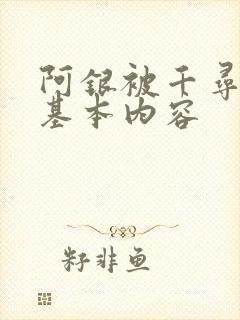 阿银被千寻
基本内容
籽非鱼